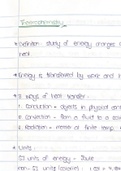 Thermochemistry
* Definition: study of energy changes in
heat
* Energy is transferred by work and h
* 3 ways of heat transfer -
1. Conduction = objects in physical con
2. Convection = from a fluid to a so
3. Radiation = means of finite temp.
* Units
SI units of energy = Joule
non-SI units (calorie) : 1 cal =